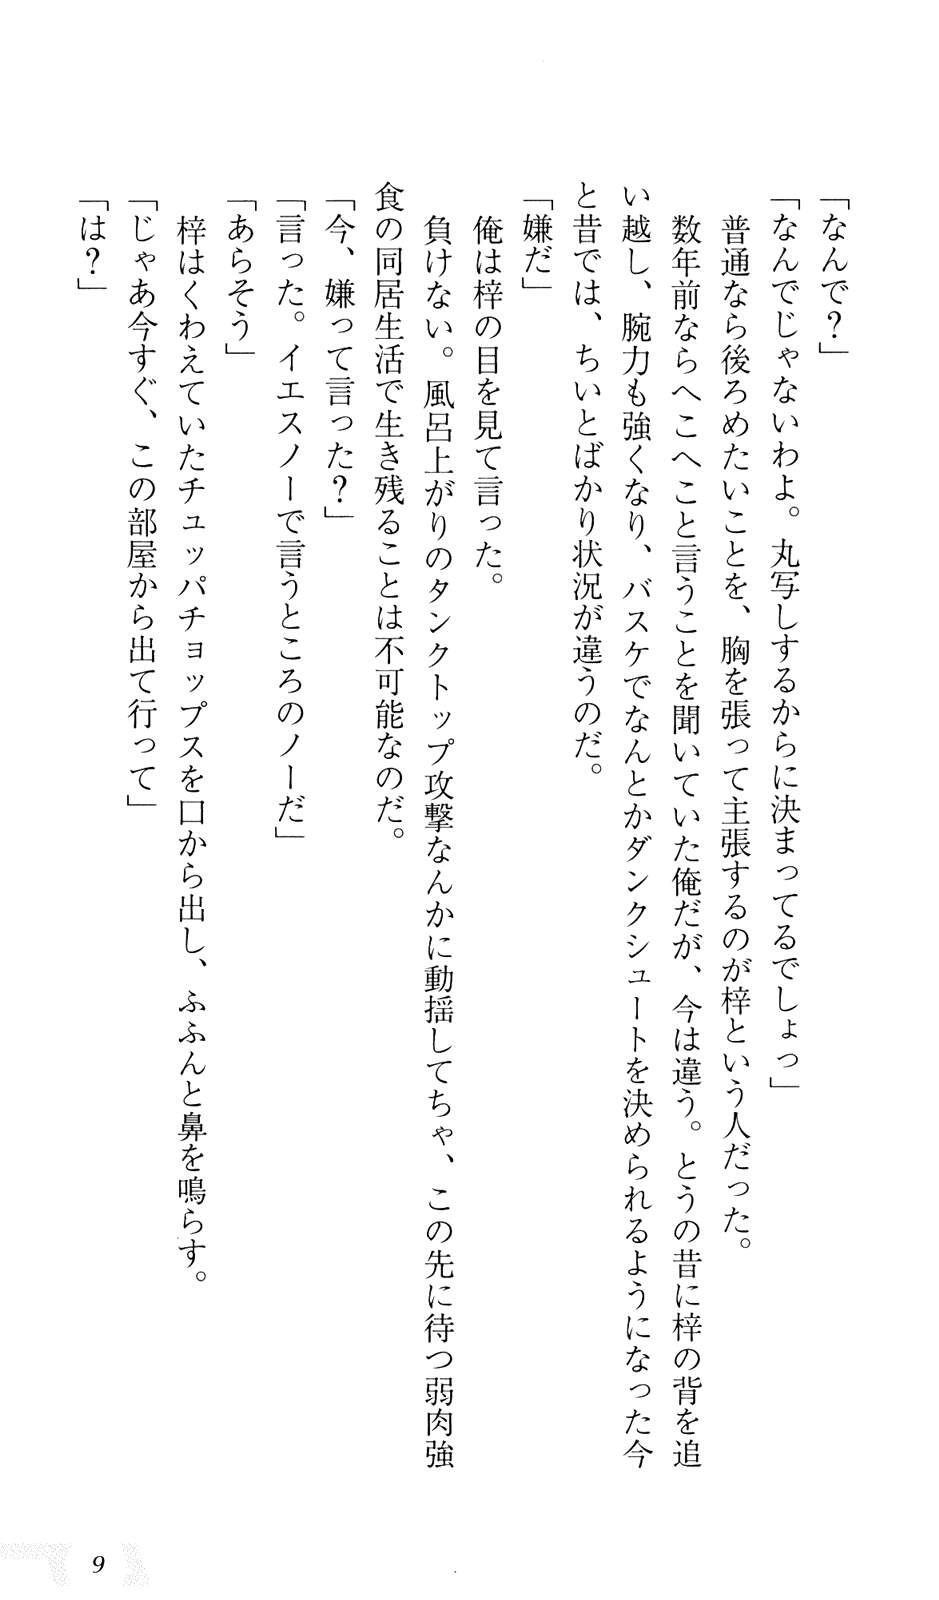 「なんで？」
「なんでじゃないわよ。丸写しするからに決まってるでしょっ」
　普通なら後ろめたいことを、胸を張って主張するのが梓という人だった。
　数年前ならへこへこと言うことを聞いていた俺だが、今は違う。とうの昔に梓の背を追
い越し、腕力も強くなり、バスケでなんとかダンクシュートを決められるようになった今
と昔では、ちいとばかり状況が違うのだ。
「嫌だ」
　俺は梓の目を見て言った。
　負けない。風呂上がりのタンクトップ攻撃なんかに動揺してちゃ、この先に待つ弱肉強
食の同居生活で生き残ることは不可能なのだ。
「今、嫌って言った？」
「言った。イエスノーで言うところのノーだ」
「あらそう」
　梓はくわえていたチュッパチョップスを口から出し、ふふんと鼻を鳴らす。
「じゃあ今すぐ、この部屋から出て行って」
「は？」
9